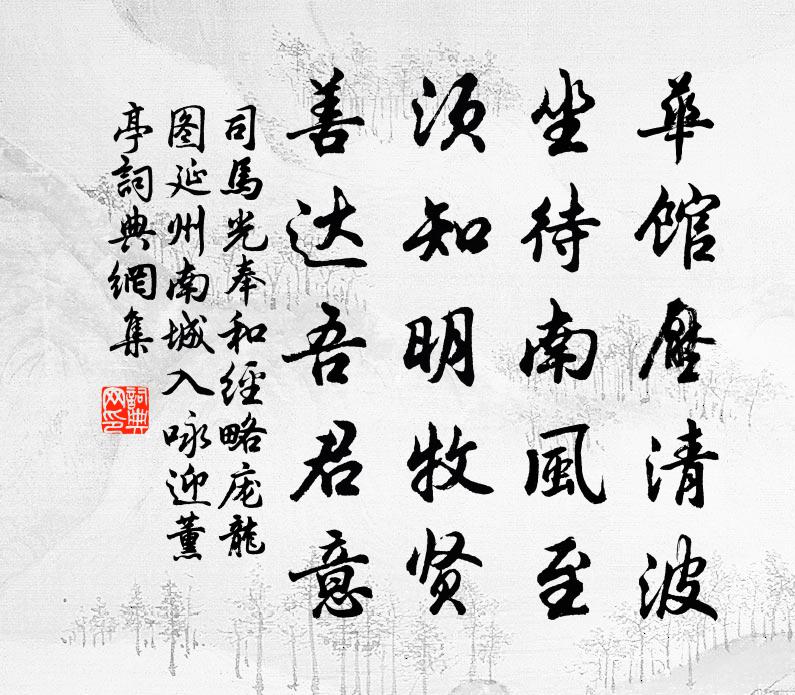 華馆壓清波
坐待南風至
须知明牧贤
善达吾君意
司馬光奉和經略庞龍
图延州南城入咏迎薰
亭詞典網集
詞典
网印